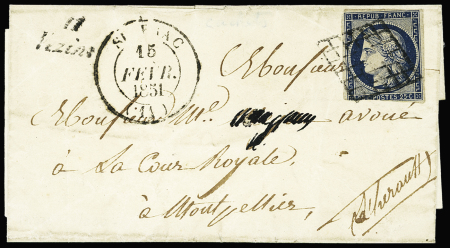 11
Vezins
Sᵀ
AC
15
FEVR.
1851
(11)
REPUB. FRANC.
POSTES 25c
Monsieur
Monsieur Mᵉ avoué
à La Cour Royale,
à Montpellier,
(hérault)